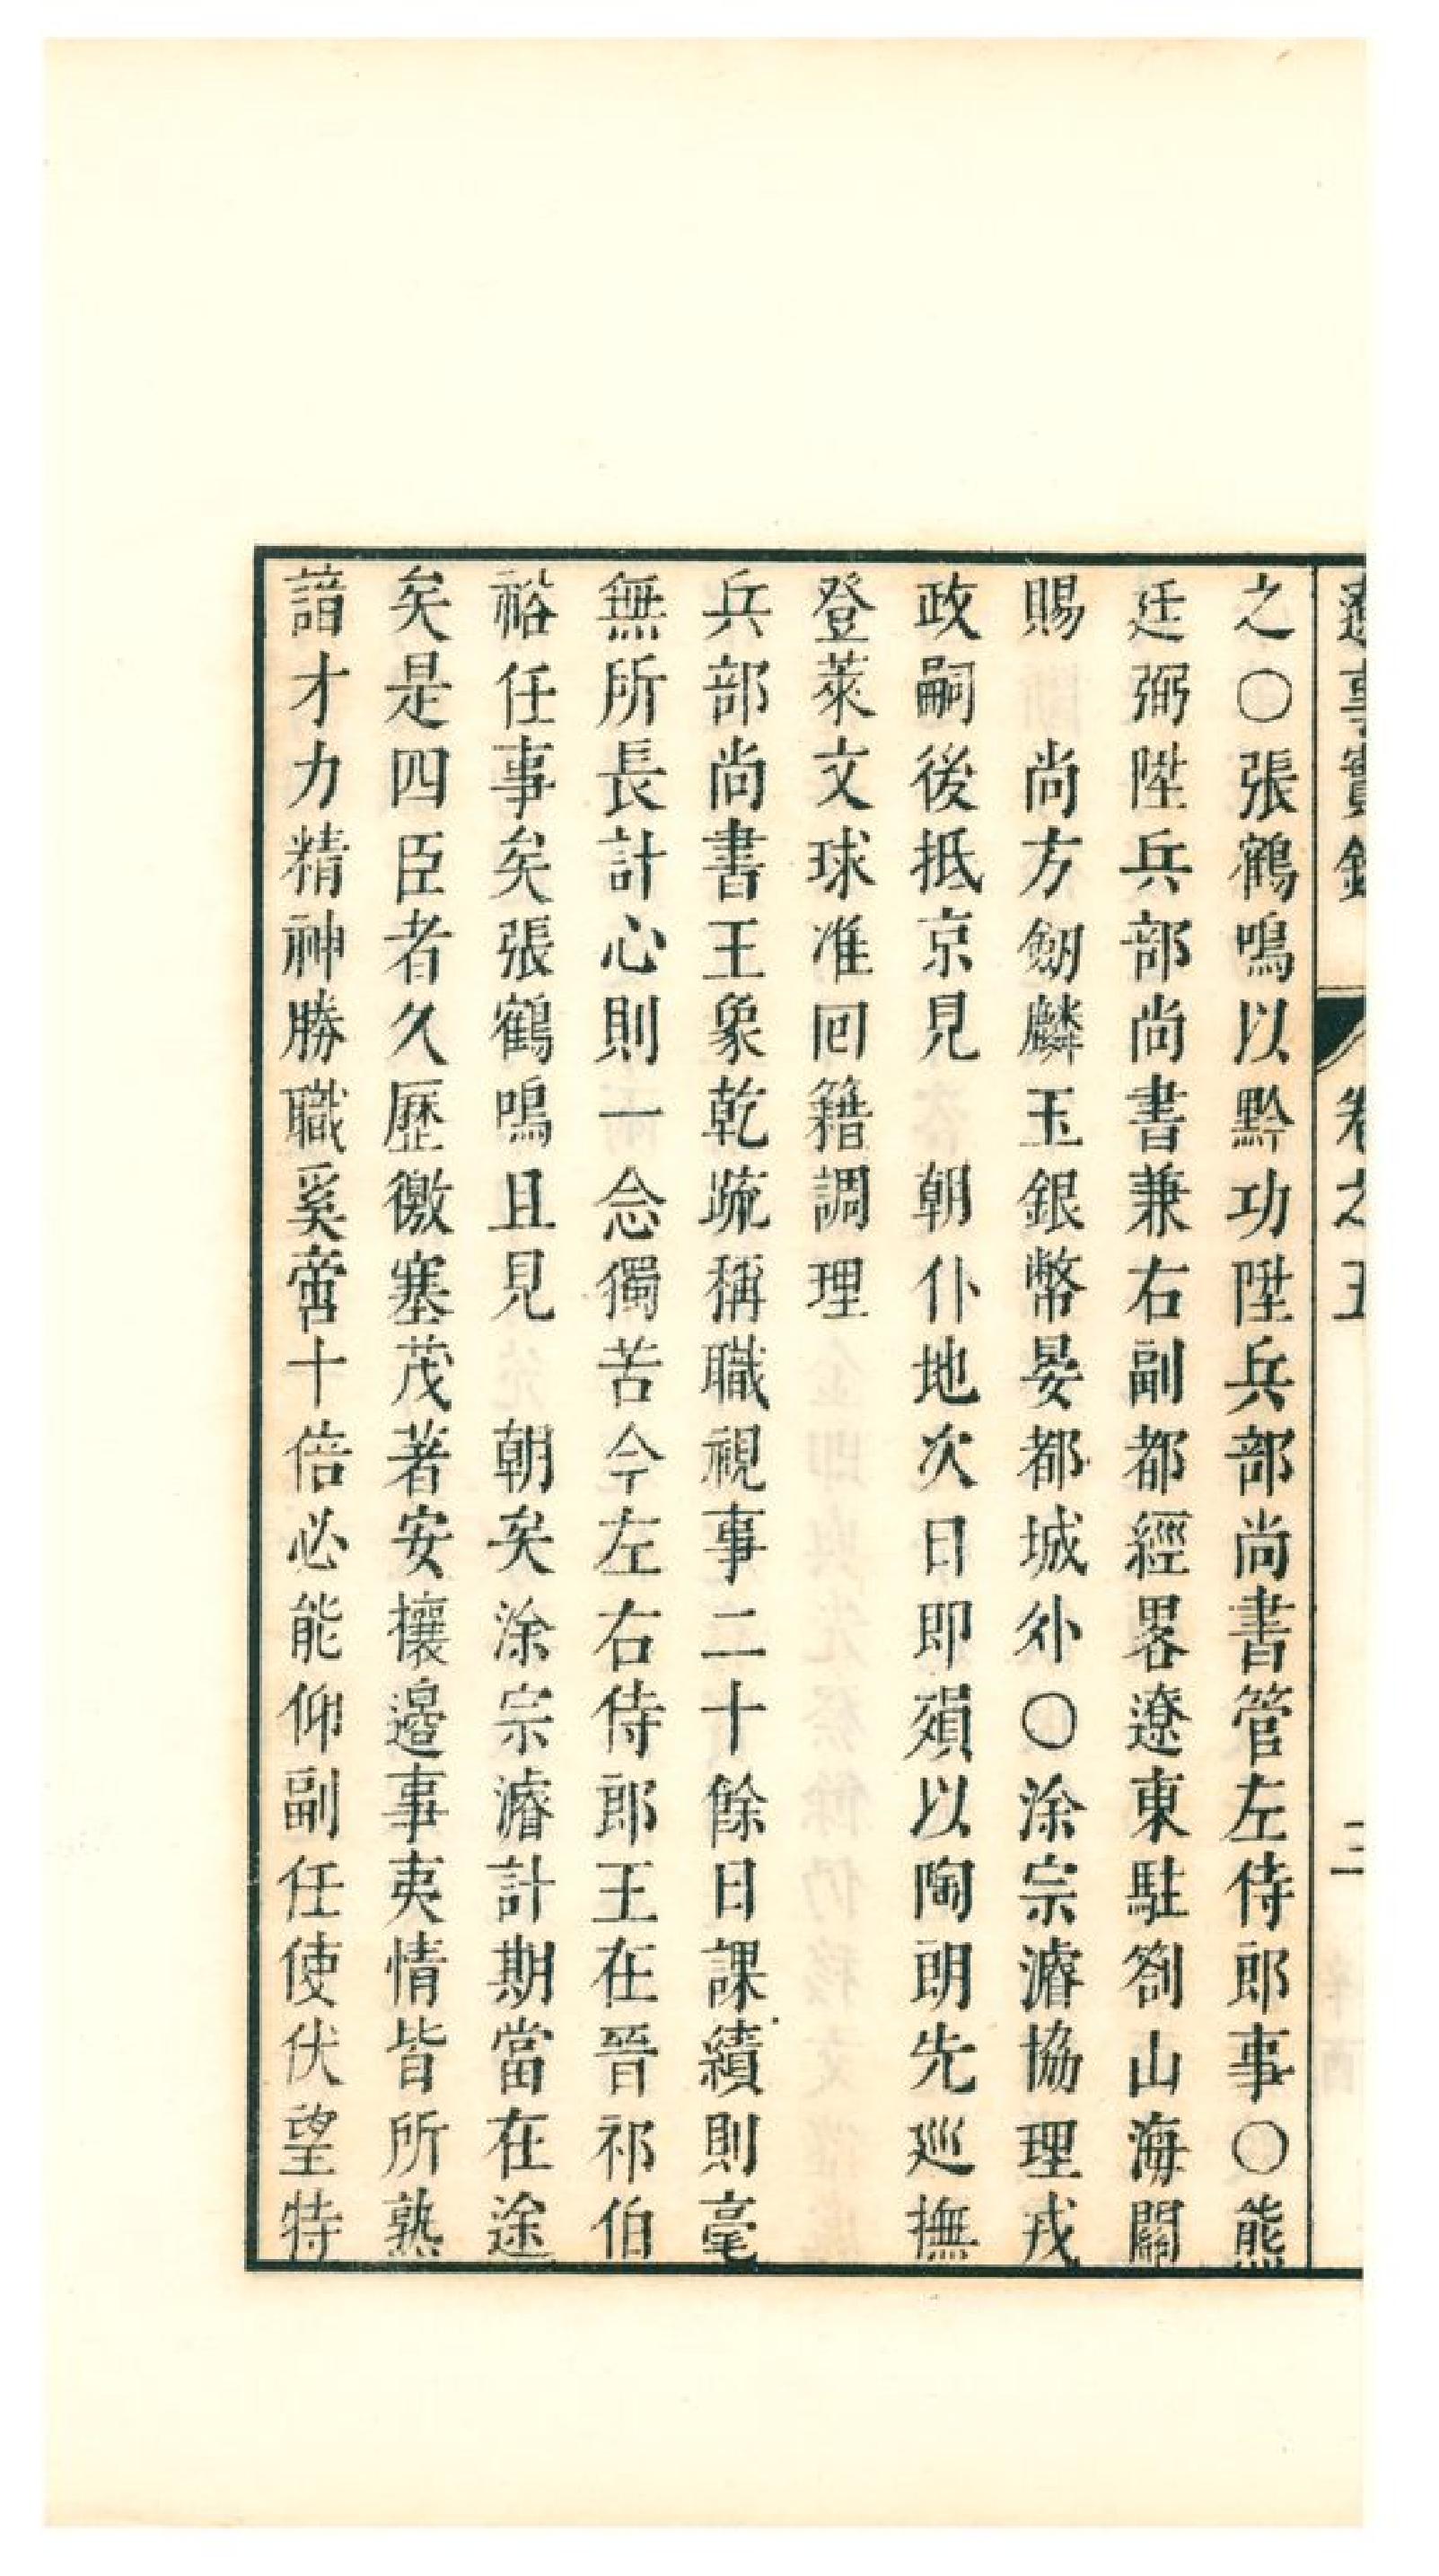 遼事實錄 卷之五 二
之○張鶴鳴以黔功陞兵部尚書管左侍郎事○熊
廷弼陞兵部尚書兼右副都經畧遼東駐劄山海關
賜 尚方劒麟玉銀幣晏都城外○涂宗濬協理戎
政嗣後抵京見 朝仆地次日即殞以陶朗先巡撫
登萊文球准囘籍調理
兵部尚書王象乾疏稱職視事二十餘日課績則毫
無所長計心則一念獨苦今左右侍郎王在晉祁伯
裕任事矣張鶴鳴且見 朝矣涂宗濬計期當在途
矣是四臣者久歷徼塞茂著安攘邉事夷情皆所熟
諳才力精神勝職奚啻十倍必能仰副任使伏望特